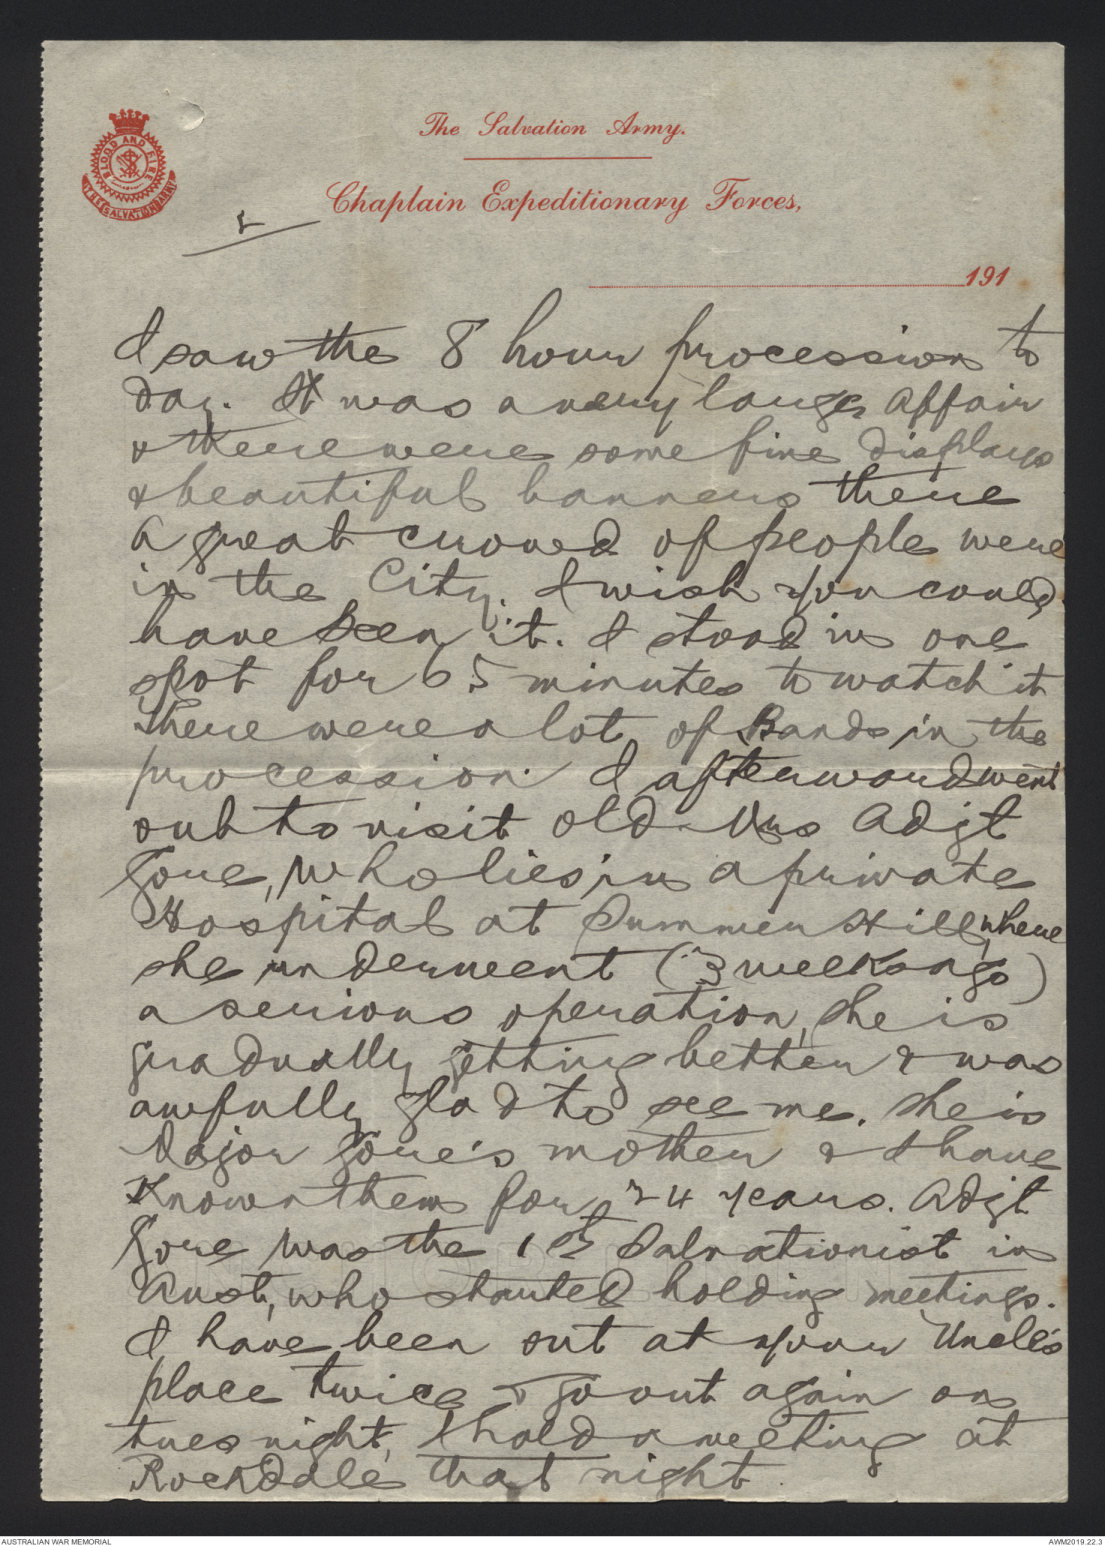 The Salvation Army.
Chaplain Expeditionary Forces,
BLOOD AND FIRE
THE SALVATION ARMY
191
I saw the 8 hour procession to
day. It was a very large affair
& there were some fine displays
& beautiful banners there
a great crowd of people were
in the City. I wish you could
have seen it. I stood in one
spot for 65 minutes to watch it
There were a lot of Bands in the
procession. I afterward went
out to visit old Mrs Adjt
Gore, who lies in a private
Hospital at Summer Hill, where
she underwent (3 weeks ago)
a serious operation, she is
gradually getting better & was
awfully glad to see me. She is
Major Gore's mother & I have
known them for 24 years. Adjt
Gore was the 1st Salvationist in
Aust, who started holding meetings.
I have been out at your Uncle's
place twice & go out again on
tues night, I hold a meeting at
Rockdale that night
AUSTRALIAN WAR MEMORIAL
AWM2019.22.3